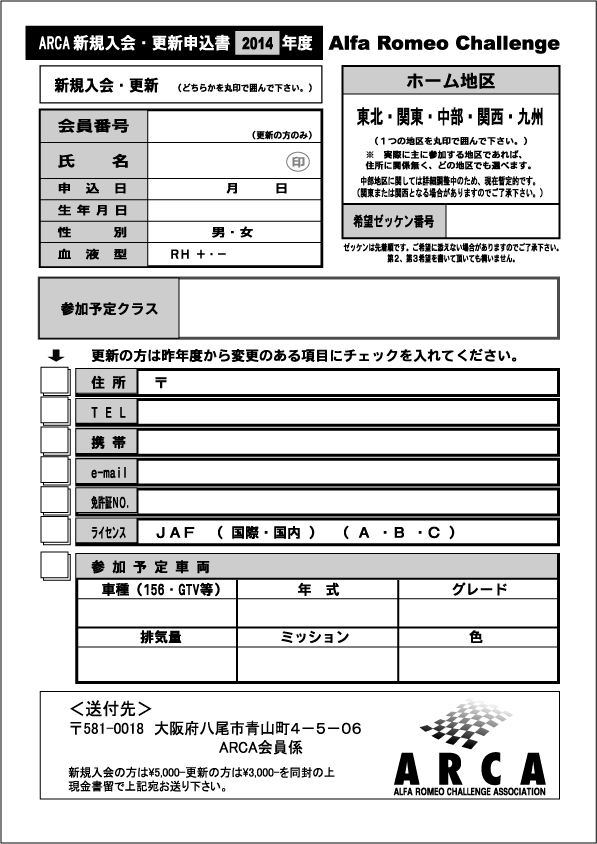 ARCA 新規入会・更新申込書 2014 年度 Alfa Romeo Challenge
新規入会・更新 （どちらかを丸印で囲んで下さい。）
会員番号 （更新の方のみ）
氏 名 ㊞
申 込 日 月 日
生 年 月 日
性 別 男・女
血 液 型 RH ＋・－
ホーム地区
東北・関東・中部・関西・九州
（１つの地区を丸印で囲んで下さい。）
※ 実際に主に参加する地区であれば、
住所に関係無く、どの地区でも選べます。
中部地区に関しては詳細調整中のため、現在暫定的です。
（関東または関西となる場合がありますのでご了承下さい。）
希望ゼッケン番号
ゼッケンは先着順です。ご希望に添えない場合がありますのでご了承下さい。
第２、第３希望を書いて頂いても構いません。
参加予定クラス
更新の方は昨年度から変更のある項目にチェックを入れてください。
住 所 〒
ＴＥＬ
携 帯
e-mail
免許証NO.
ライセンス ＪＡＦ （ 国際・国内 ） （ Ａ ・Ｂ ・Ｃ ）
参 加 予 定 車 両
車種（156・GTV等） 年 式 グレード
排気量 ミッション 色
＜送付先＞
〒581-0018 大阪府八尾市青山町４－５－０６
ARCA会員係
新規入会の方は¥5,000-更新の方は¥3,000-を同封の上
現金書留で上記宛お送り下さい。
ARCA
ALFA ROMEO CHALLENGE ASSOCIATION